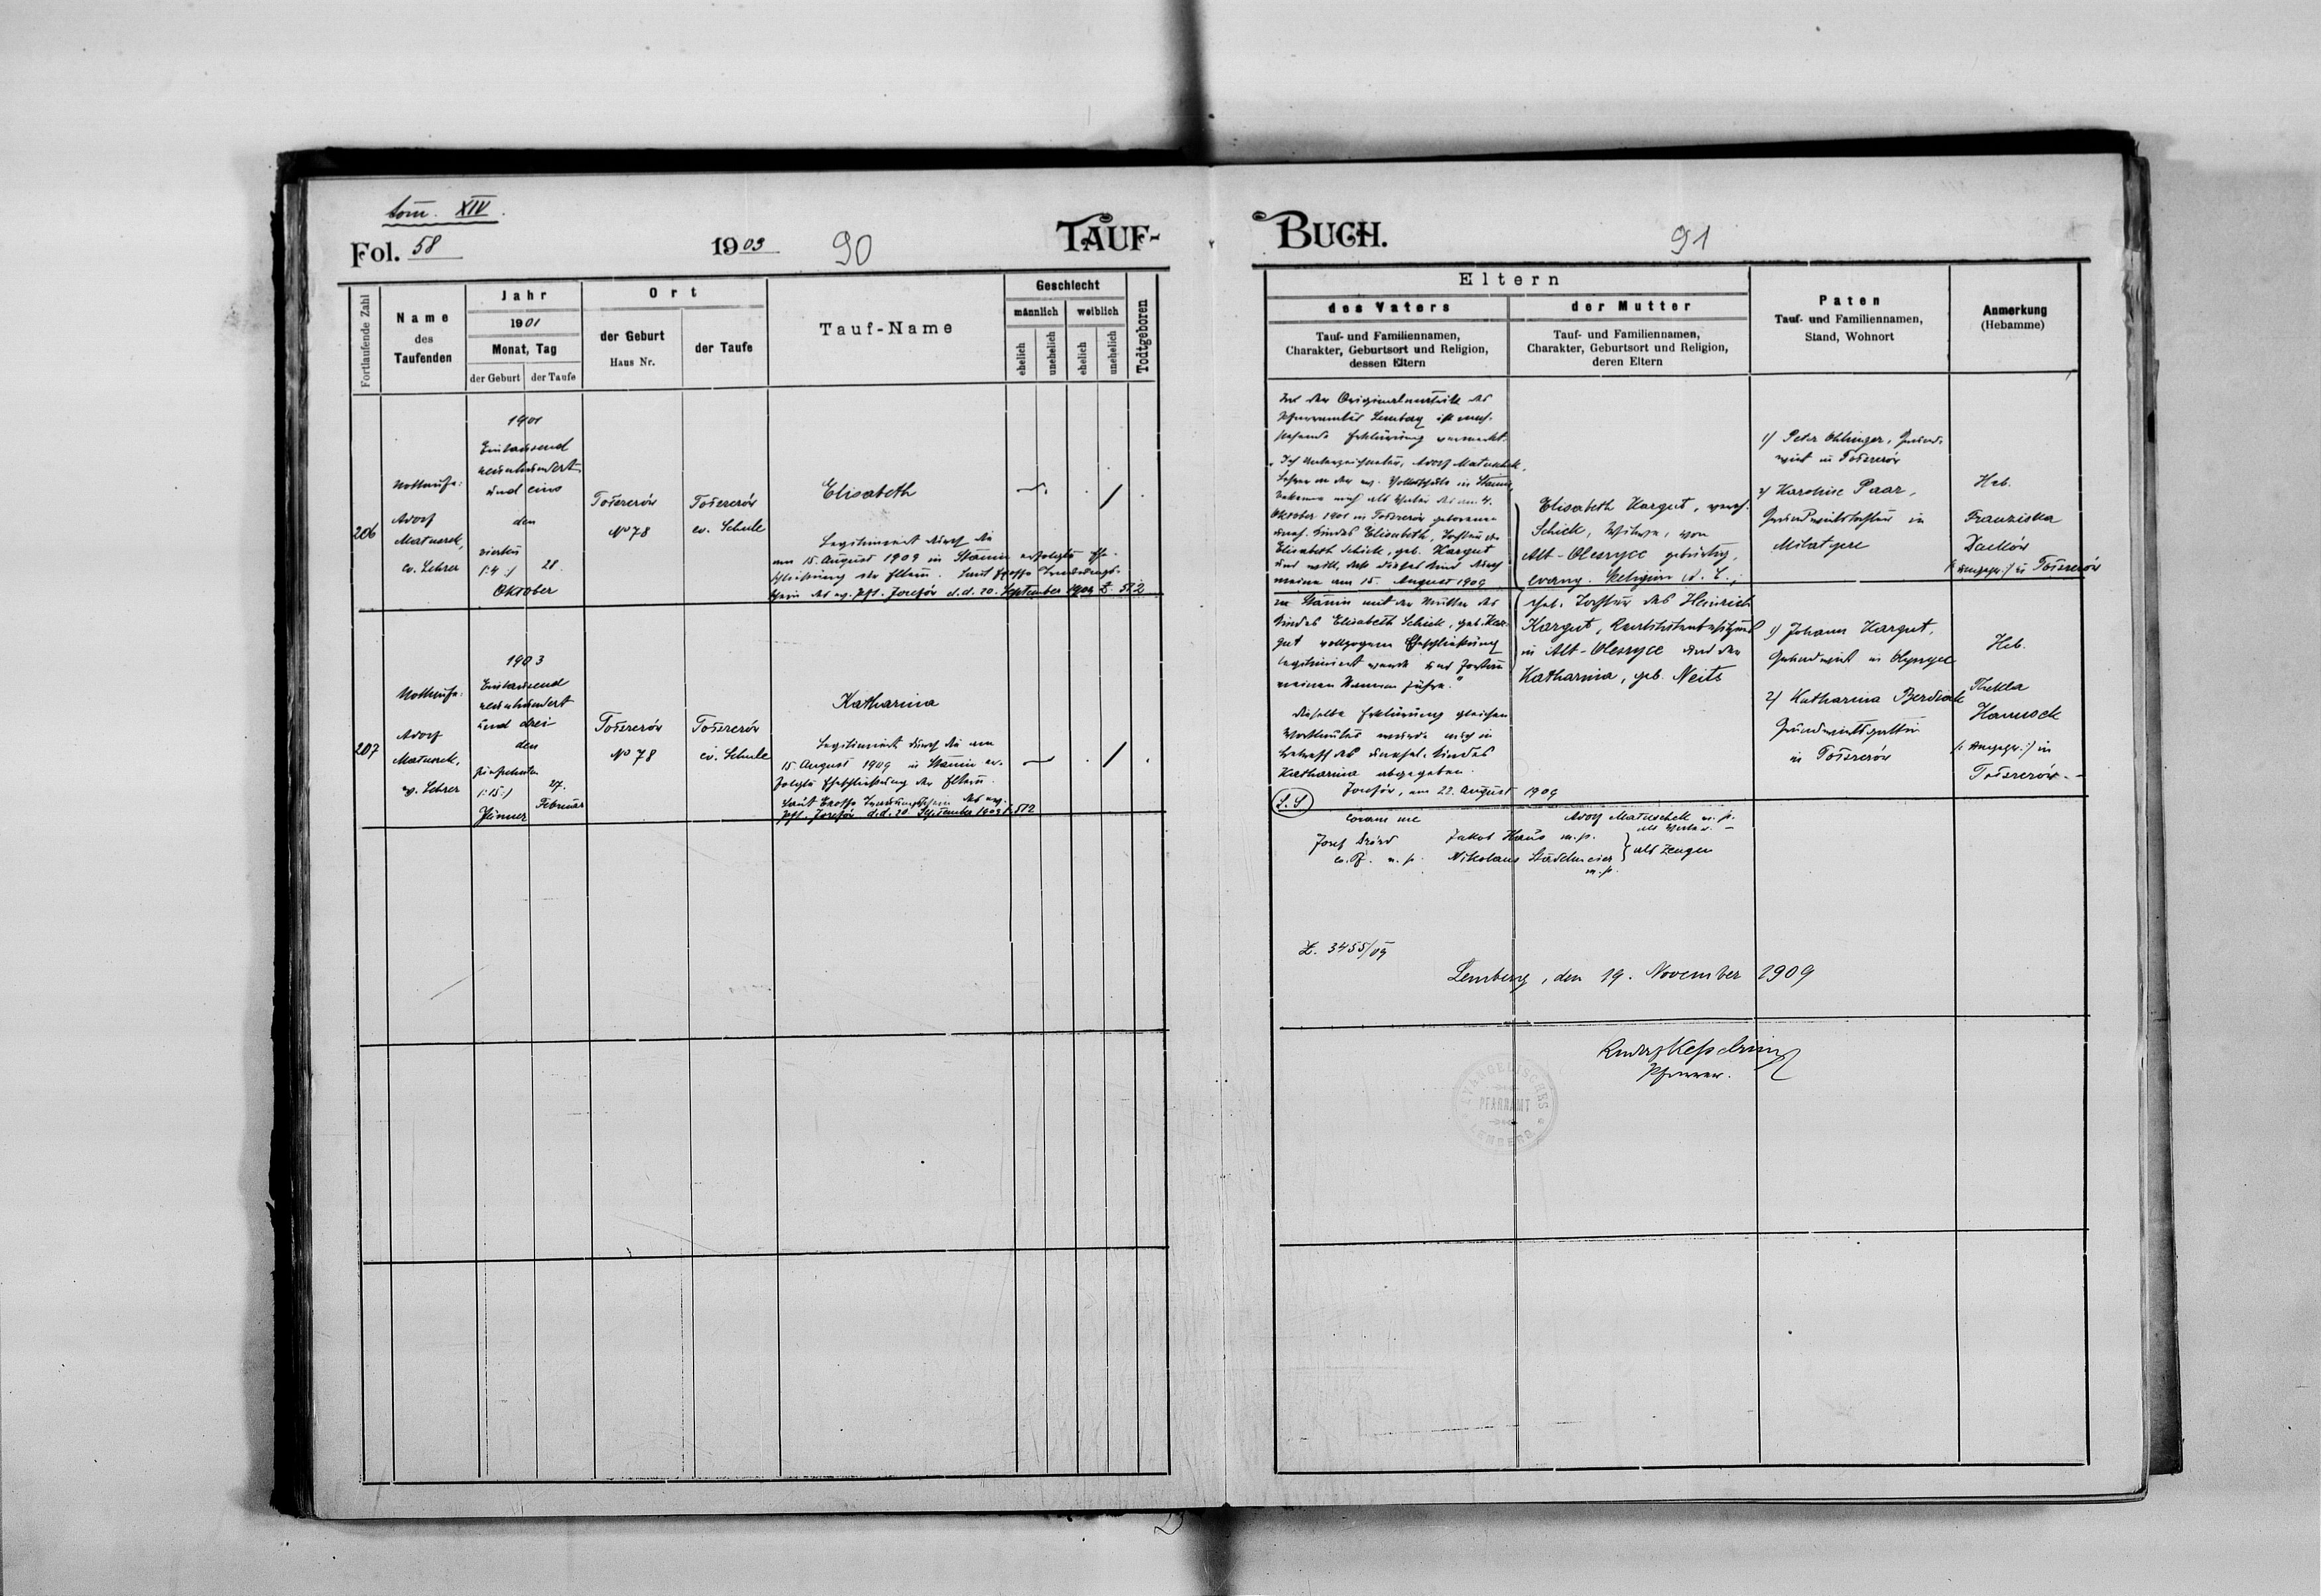 tom. XIV.
Fol. 58
1903
90
TAUF-
Fortlaufende Zahl
Name
des
Taufenden
Jahr
1901
Monat, Tag
der Geburt
der Taufe
Ort
der Geburt
Haus Nr.
der Taufe
Tauf-Name
Geschlecht
männlich
weiblich
ehelich
unehelich
ehelich
unehelich
Todtgeboren
206
Nottaufe:
Adolf
Matuschek,
ev. Lehrer
1901
Eintausend
neunhundert
und eins
den
vierten
/:4:/
28.
Oktober
Toszczów
No 78
Toszczów
ev. Schule
Elisabeth
Legitimiert durch die
am 15. August 1909 in Stanin erfolgte Ehe-
schließung der Eltern. Laut Trauungs-
schein des ev. Pft. Josefów d.d. 20. September 1909 Z. 512
207
Nottaufe:
Adolf
Matuschek,
ev. Lehrer
1903
Eintausend
neunhundert
und drei
den
fünfzehnten
/:15:/
27.
Februar
Jänner
Toszczów
No 78
Toszczów
ev. Schule
Katharina
Legitimiert durch die am
15. August 1909 in Stanin er-
folgte Eheschließung der Eltern.
Laut Trauungsschein des ev.
Pft. Josefów d.d. 20. September 1909 Z. 512
BUCH.
91
Eltern
des Vaters
Tauf- und Familiennamen,
Charakter, Geburtsort und Religion,
dessen Eltern
der Mutter
Tauf- und Familiennamen,
Charakter, Geburtsort und Religion,
deren Eltern
Paten
Tauf- und Familiennamen,
Stand, Wohnort
Anmerkung
(Hebamme)
Auf der Originalmatrik des
Pfarramtes Lemberg ist nach-
stehende Erklärung vermerkt:
"Ich Unterzeichneter, Adolf Matuschek,
Lehrer an der ev. Volksschule in Stanin,
bekenne mich als Vater des am 4.
Oktober 1901 in Toszczów geborenen
unehel. Kindes Elisabeth, Tochter der
Elisabeth Schick, geb. Kargut
und will, daß dieses Kind durch
meine am 15. August 1909
in Stanin mit der Mutter des
Kindes Elisabeth Schick, geb. Kar-
gut vollzogene Eheschließung
legitimiert werde und fortan
meinen Namen führe."
Dieselbe Erklärung gleichen
Wortlautes wurde auch in
betreff des unehel. Kindes
Katharina abgegeben.
Josefów, am 22. August 1909
L.S.
coram me
Josef Drózd
ev. Pf. m.p.
Adolf Matuschek m.p.
als Vater. –
Jakob Haus m.p.
Nikolaus Städelmeier
m.p.
als Zeugen
Elisabeth Kargut, verw.
Schick, Witwe, von
Alt-Oleszyce gebürtig,
evang. Religion A.C.,
ehel. Tochter des Heinrich
Kargut, Realitätenbesitzers
in Alt-Oleszyce und der
Katharina, geb. Neits
1/ Peter Ohlinger, Grund-
wirt in Toszczów
2/ Karoline Paar,
Grundwirtstochter in
Milatycze
Heb.
Franziska
/: ungepr.:/ in Toszczów
1/ Johann Kargut,
Grundwirt in Oleszyce
2/ Katharina Berdick
Grundwirtsgattin
in Toszczów
Heb.
Thekla
Hanusek
/: ungepr.:/ in
Toszczów. –
Z. 3455/09
Lemberg, den 19. November 1909
Kesselring
Pfarrer.
EVANGELISCHES
PFARRAMT
LEMBERG